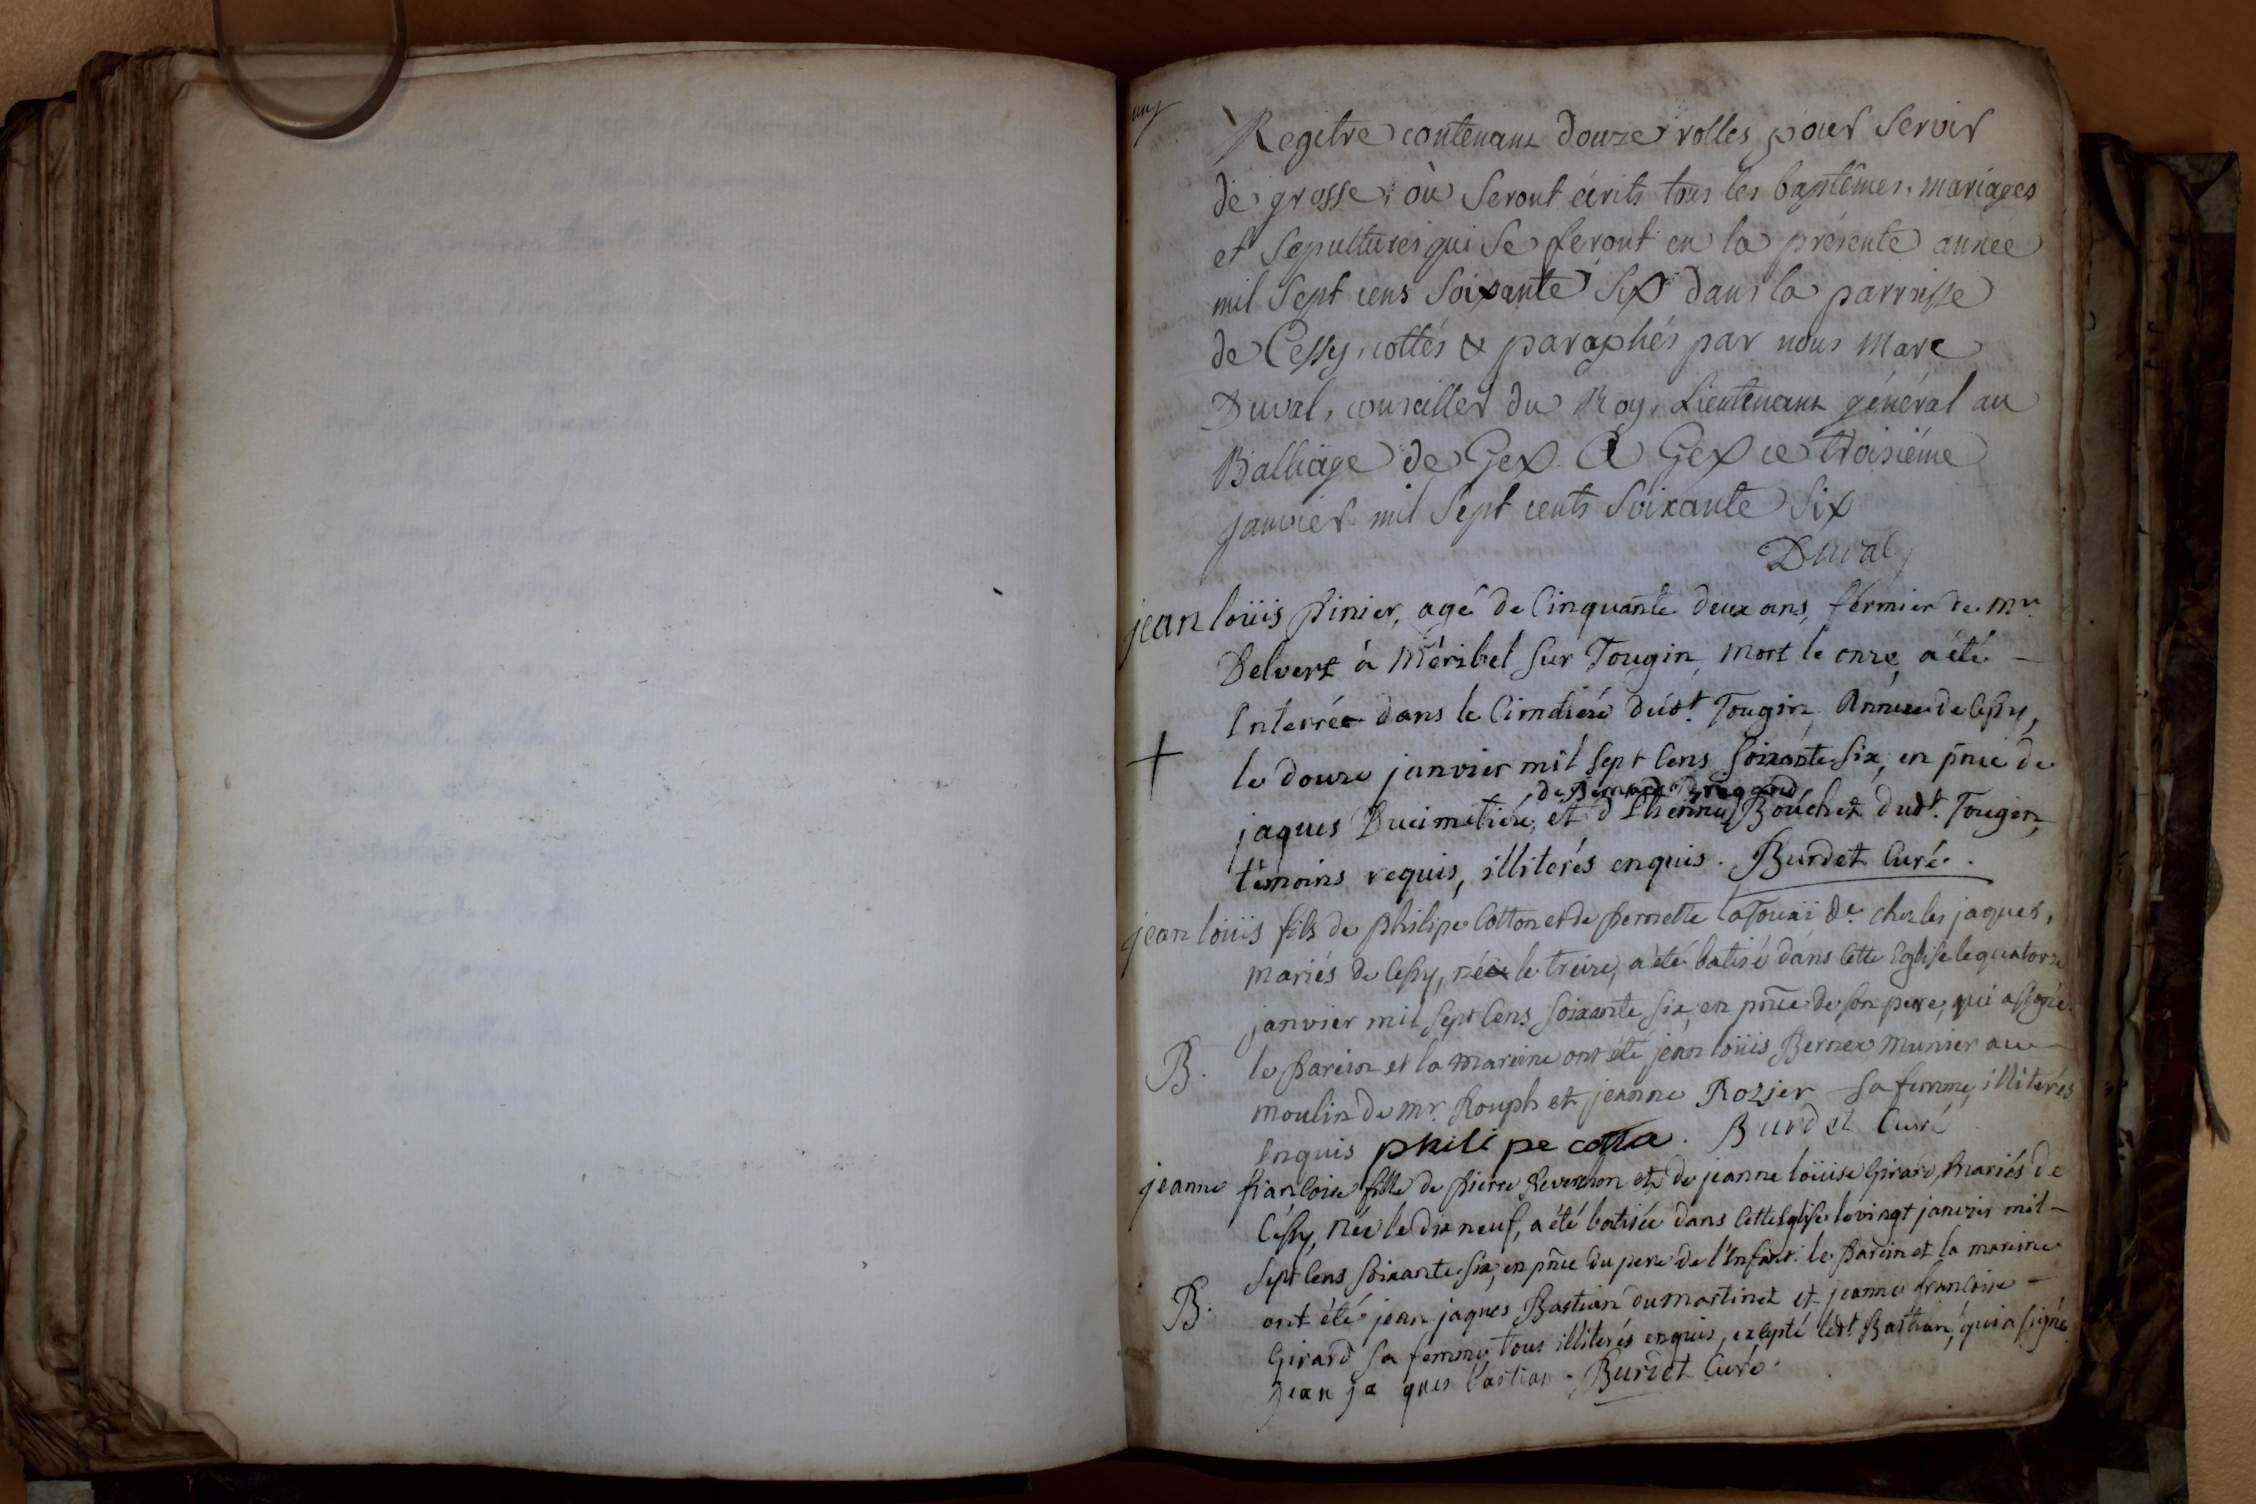 Regitre contenant douze rolles pour servir
de grosse où seront écrits tous les baptêmes, mariages
et sepultures qui se feront en la présente année
mil sept cens soixante six dans la parroisse
de Cessy, cottés & paraphés par nous Marc
Duval, conseiller du Roy, Lieutenant général au
Balliage de Gex. A Gex ce troisiéme
janvier mil sept cents soixante six
Duval
jean loüis pinier, agé de Cinquante deux ans, fermier de mr.
Delvert à Méribel sur Tougin, mort le onze, a été
Interrée dans le Cimétiére dudt. Tougin Annexe de Cessy,
+
le douze janvier mil sept Cens soixante six, en pnce de
de Bernard Brigand
jaques Ducimetiére, et d'Ethienne Bouchet dudt. Tougin,
témoins requis, illiterés enquis. Burdet Curé.
jean loüis fils de philipe Cotton et de pernette la Touäi de. cherles jaques,
mariés de Cessy, née le treize, a été batisé dans Cette Eglise le quatorze
janvier mil sept Cens soixante six, en pnce de son pere, qui a signé.
B.
le parein et la mareine ont été jean loüis Bernex munier au
moulin de mr. Rouph et jeanne Rozier sa femme, illiterés
Enquis philipe cotta. Burdet Curé
jeanne francoise fille de pierre Reverchon et de jeanne loüise Girard, mariés de
Céssy, Née le dix neuf, a été batisée dans Cette Eglise le vingt janvier mil
sept Cens soixante six, en pnce du pere de l'Enfant. le parein et la mareine
B.
ont été jean jaques Bastian du martinet et jeanne francoise
Girard sa femme, tous illiterés enquis, excepté ledt Bastian, qui a signé
jean ja ques bastian. Burdet Curé.